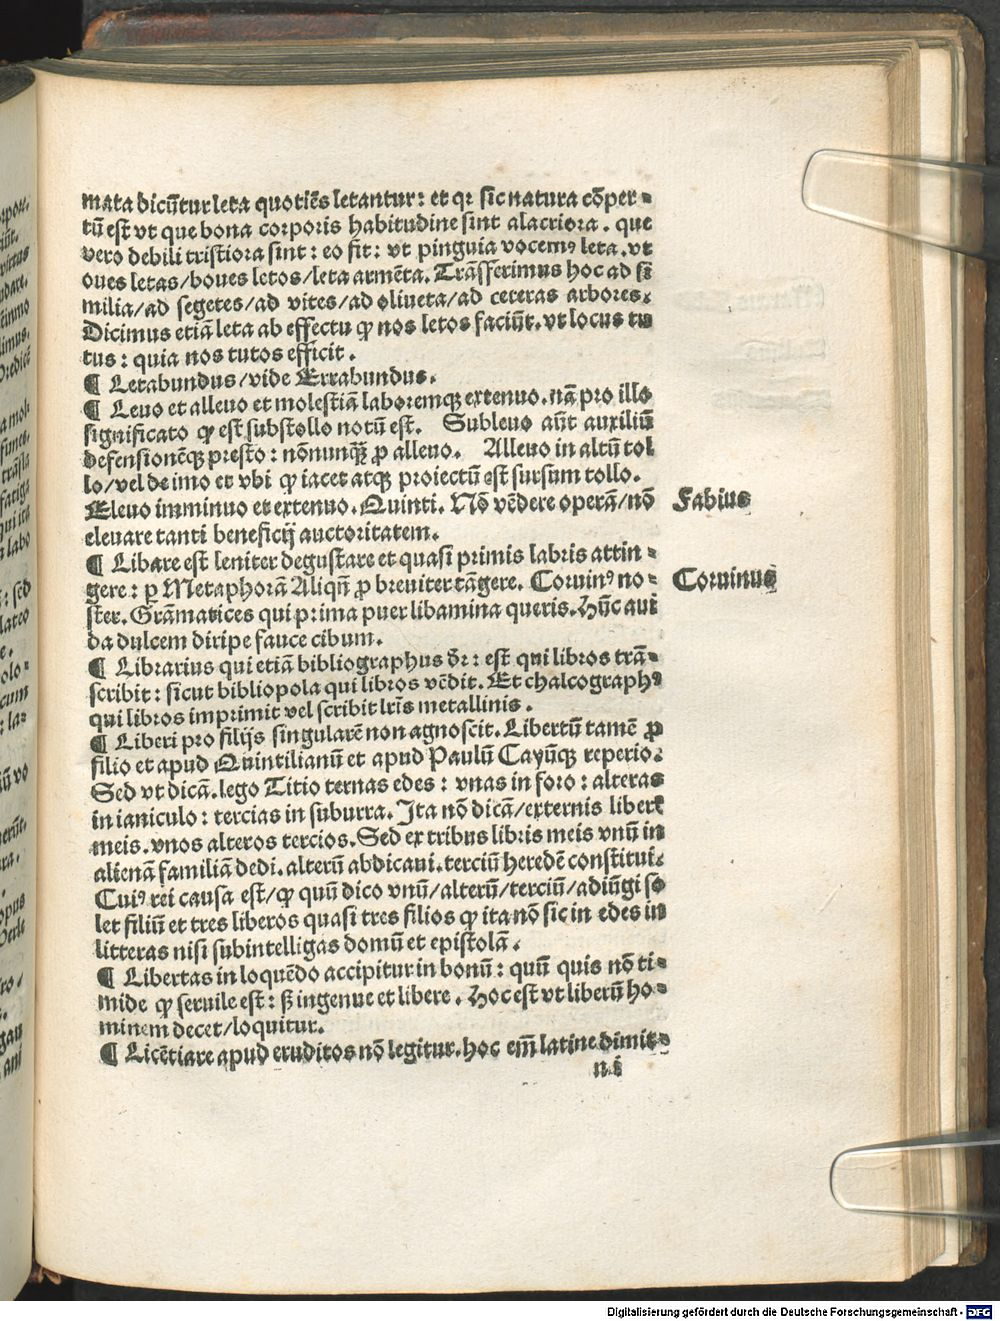 mata dicūtur leta quotiēs letantur: et qꝛ sic natura cōper⸗
tū est vt que bona corporis habitudine sint alacriora. que
vero debili tristiora sint: eo fit: vt pinguia vocemꝰ leta. vt
oues letas/boues letos/leta armēta. Trāsferimus hoc ad si
milia/ad segetes/ad vites/ad oliueta/ad ceteras arbores.
Dicimus etiā leta ab effectu ꝙ nos letos faciūt. vt locus tu
tus: quia nos tutos efficit.
¶ Letabundus/vide Errabundus.
¶ Leuo et alleuo et molestiā laboremqꝫ extenuo. nā pro illo
significato ꝙ est substollo notū est. Subleuo aūt auxiliū
defensionēqꝫ presto: nōnunqꝫ̄ ꝓ alleuo. Alleuo in altū tol
lo/vel de imo et vbi ꝙ iacet atqꝫ proiectū est sursum tollo.
Eleuo imminuo et extenuo. Quinti. Nō vēdere operā/nō
eleuare tanti beneficij auctoritatem.
Fabius
¶ Libare est leniter degustare et quasi primis labris attin⸗
gere: ꝑ Metaphorā Aliqn̄ ꝓ breuiter tāgere. Coruinꝰ no⸗
Coruinus
ster. Grāmatices qui prima puer libamina queris. Hūc aui
da dulcem diripe fauce cibum.
¶ Librarius qui etiā bibliographus dr̄: est qui libros trā⸗
scribit: sicut bibliopola qui libros vēdit. Et chalcographꝰ
qui libros imprimit vel scribit lr̄is metallinis.
¶ Liberi pro filijs singularē non agnoscit. Libertū tamē ꝓ
filio et apud Quintilianū et apud Paulū Cayūqꝫ reperio.
Sed vt dicā. lego Titio ternas edes: vnas in foro: alteras
in ianiculo: tercias in suburra. Ita nō dicā/externis liberi
meis. vnos alteros tercios. Sed ex tribus libris meis vnū in
alienā familiā dedi. alterū abdicaui. terciū heredē constitui.
Cuiꝰ rei causa est/ꝙ quū dico vnū/alterū/terciū/adiūgi so
let filiū et tres liberos quasi tres filios ꝙ ita nō sic in edes in
litteras nisi subintelligas domū et epistolā.
¶ Libertas in loquēdo accipitur in bonū: quū quis nō ti⸗
mide ꝙ seruile est: sꝫ ingenue et libere. Hoc est vt liberū ho⸗
minem decet/loquitur.
¶ Licētiare apud eruditos nō legitur. hoc em̄ latine dimit⸗
n i
Digitalisierung gefördert durch die Deutsche Forschungsgemeinschaft - DFG